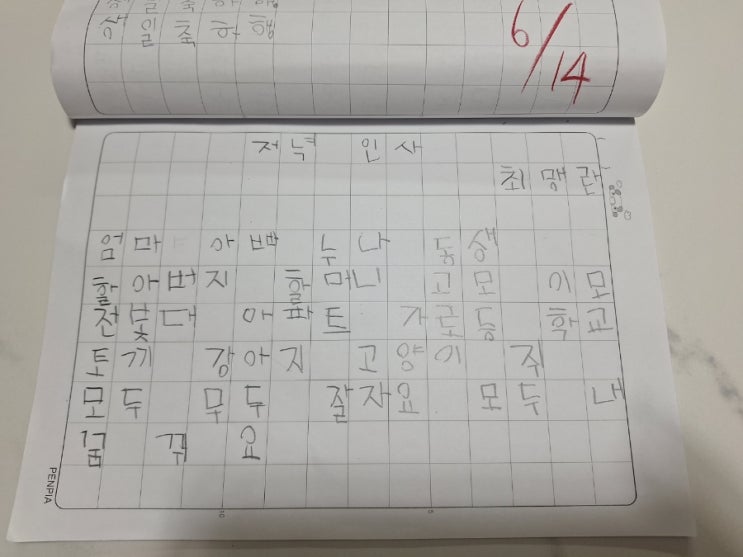 상 일 축 하 행
6/14
저녁 인사
최맹란
엄마 아빠 누나 동생
할아버지 할머니 고모 이모
전봇대 아파트 가로등 학교
토끼 강아지 고양이 쥐
모두 무두 잘자요 모두 내
꿈 꿔 요
PENPIA